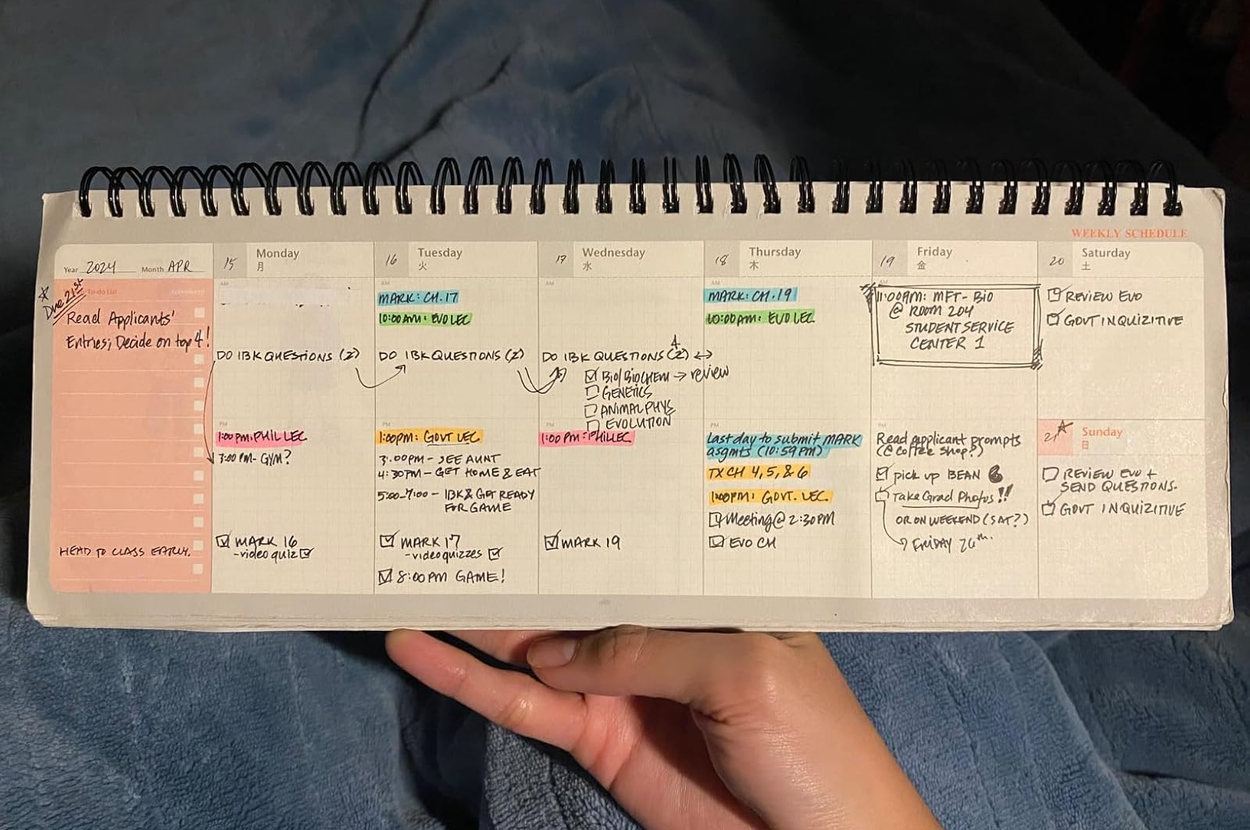 WEEKLY SCHEDULE
Year 2024 Month APR
Due 21st
To do List
Read Applicants'
Entries; Decide on top 4!
HEAD TO CLASS EARLY.
15 Monday
月
AM
DO IBK QUESTIONS (2)
PM
1:00 PM: PHIL LEC
3:00 PM- GYM?
MARK 16
-video quiz
16 Tuesday
火
AM
MARK: CH. 17
10:00AM: EVO LEC
DO IBK QUESTIONS (2)
PM
1:00PM: GOVT LEC
3:00PM- SEE AUNT
4:30PM- GET HOME & EAT
5:00-7:00- IBK & GET READY
FOR GAME
MARK 17
-video quizzes
8:00PM GAME!
17 Wednesday
水
4
DO IBK QUESTIONS (2) ↔
BIO/BIOCHEM → review
GENETICS
ANIMAL PHYS
EVOLUTION
1:00 PM: PHIL LEC
MARK 19
18 Thursday
木
AM
MARK: CH. 19
10:00AM: EVO LEC
PM
Last day to submit MARK
asgmts (10:59PM)
TX CH 4, 5, & 6
1:00PM: GOVT. LEC.
Meeting @ 2:30PM
EVO CH
19 Friday
金
11:00AM: MFT- BIO
@ ROOM 204
STUDENT SERVICE
CENTER 1
PM
Read applicant prompts
(@ coffee shop?)
pick up BEAN
Take Grad Photos!!
OR ON WEEKEND (SAT?)
FRIDAY 26th.
20 Saturday
土
REVIEW EVO
GOVT INQUIZITIVE
21 Sunday
日
REVIEW EVO +
SEND QUESTIONS.
GOVT INQUIZITIVE